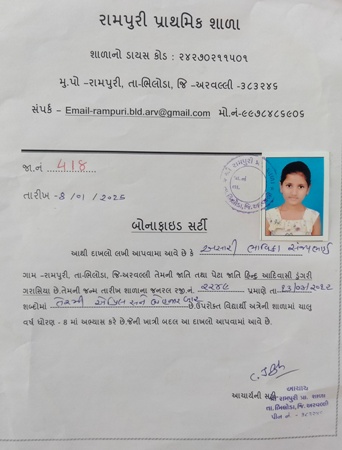 રામપુરી પ્રાથમિક શાળા
શાળાનો ડાયસ કોડ : ૨૪૨૭૦૨૧૧૫૦૧
મુ.પો -રામપુરી, તા-ભિલોડા, જિ -અરવલ્લી -૩૮૩૨૪૬
સંપર્ક – Email-rampuri.bld.arv@gmail.com મો.નં-૯૯૭૮૪૮૬૯૦૬
જા.નં 418
તારીખ -8/01/2026
બોનાફાઇડ સર્ટી
આથી દાખલો લખી આપવામાં આવે છે કે
ગામ -રામપુરી, તા-ભિલોડા, જિ-અરવલ્લી તેમની જાતિ તથા પેટા જાતિ હિન્દુ આદિવાસી ડુંગરી
ગરાસિયા છે.તેમની જન્મ તારીખ શાળાના જનરલ રજી.નં. પ્રમાણે તા
શબ્દોમાં છે.ઉપરોક્ત વિદ્યાર્થી અત્રેની શાળામાં ચાલુ
વર્ષ ધોરણ - 8 માં અભ્યાસ કરે છે.જેની ખાત્રી બદલ આ દાખલો આપવામાં આવે છે.
આચાર્યની સહી
આચાર્ય
શ્રી રામપુરી પ્રા. શાળા
તા.ભિલોડા, જિ.અરવલ્લી